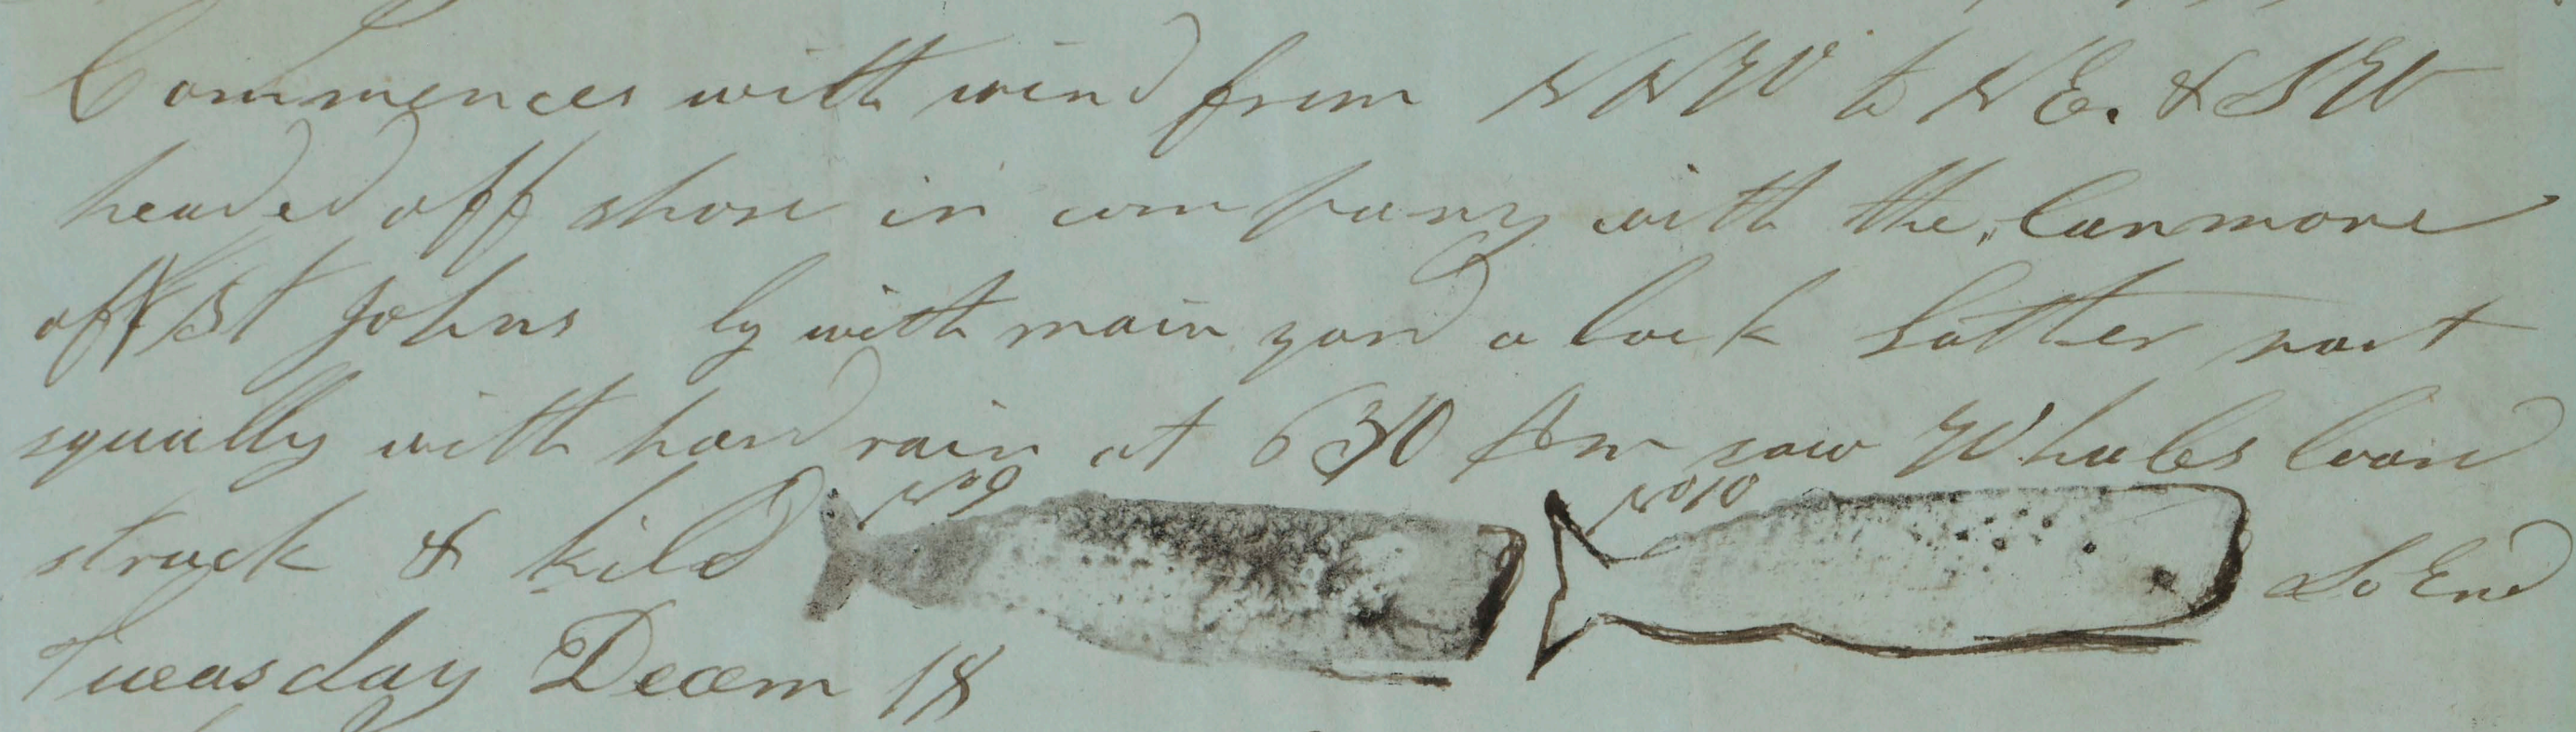 Commences with wind from NNW to NE. & SW
headed off shore in company with the Canmore
off St Johns ly with main yard a back Latter part
squally with hard rain at 630 Am saw Whales loard
struck & kild No 9 No 10 So End
Tueasday Decem 18